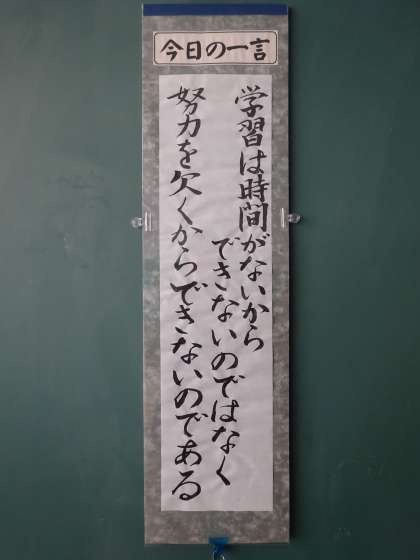 今日の一言
学習は時間がないから
できないのではなく
努力を欠くからできないのである